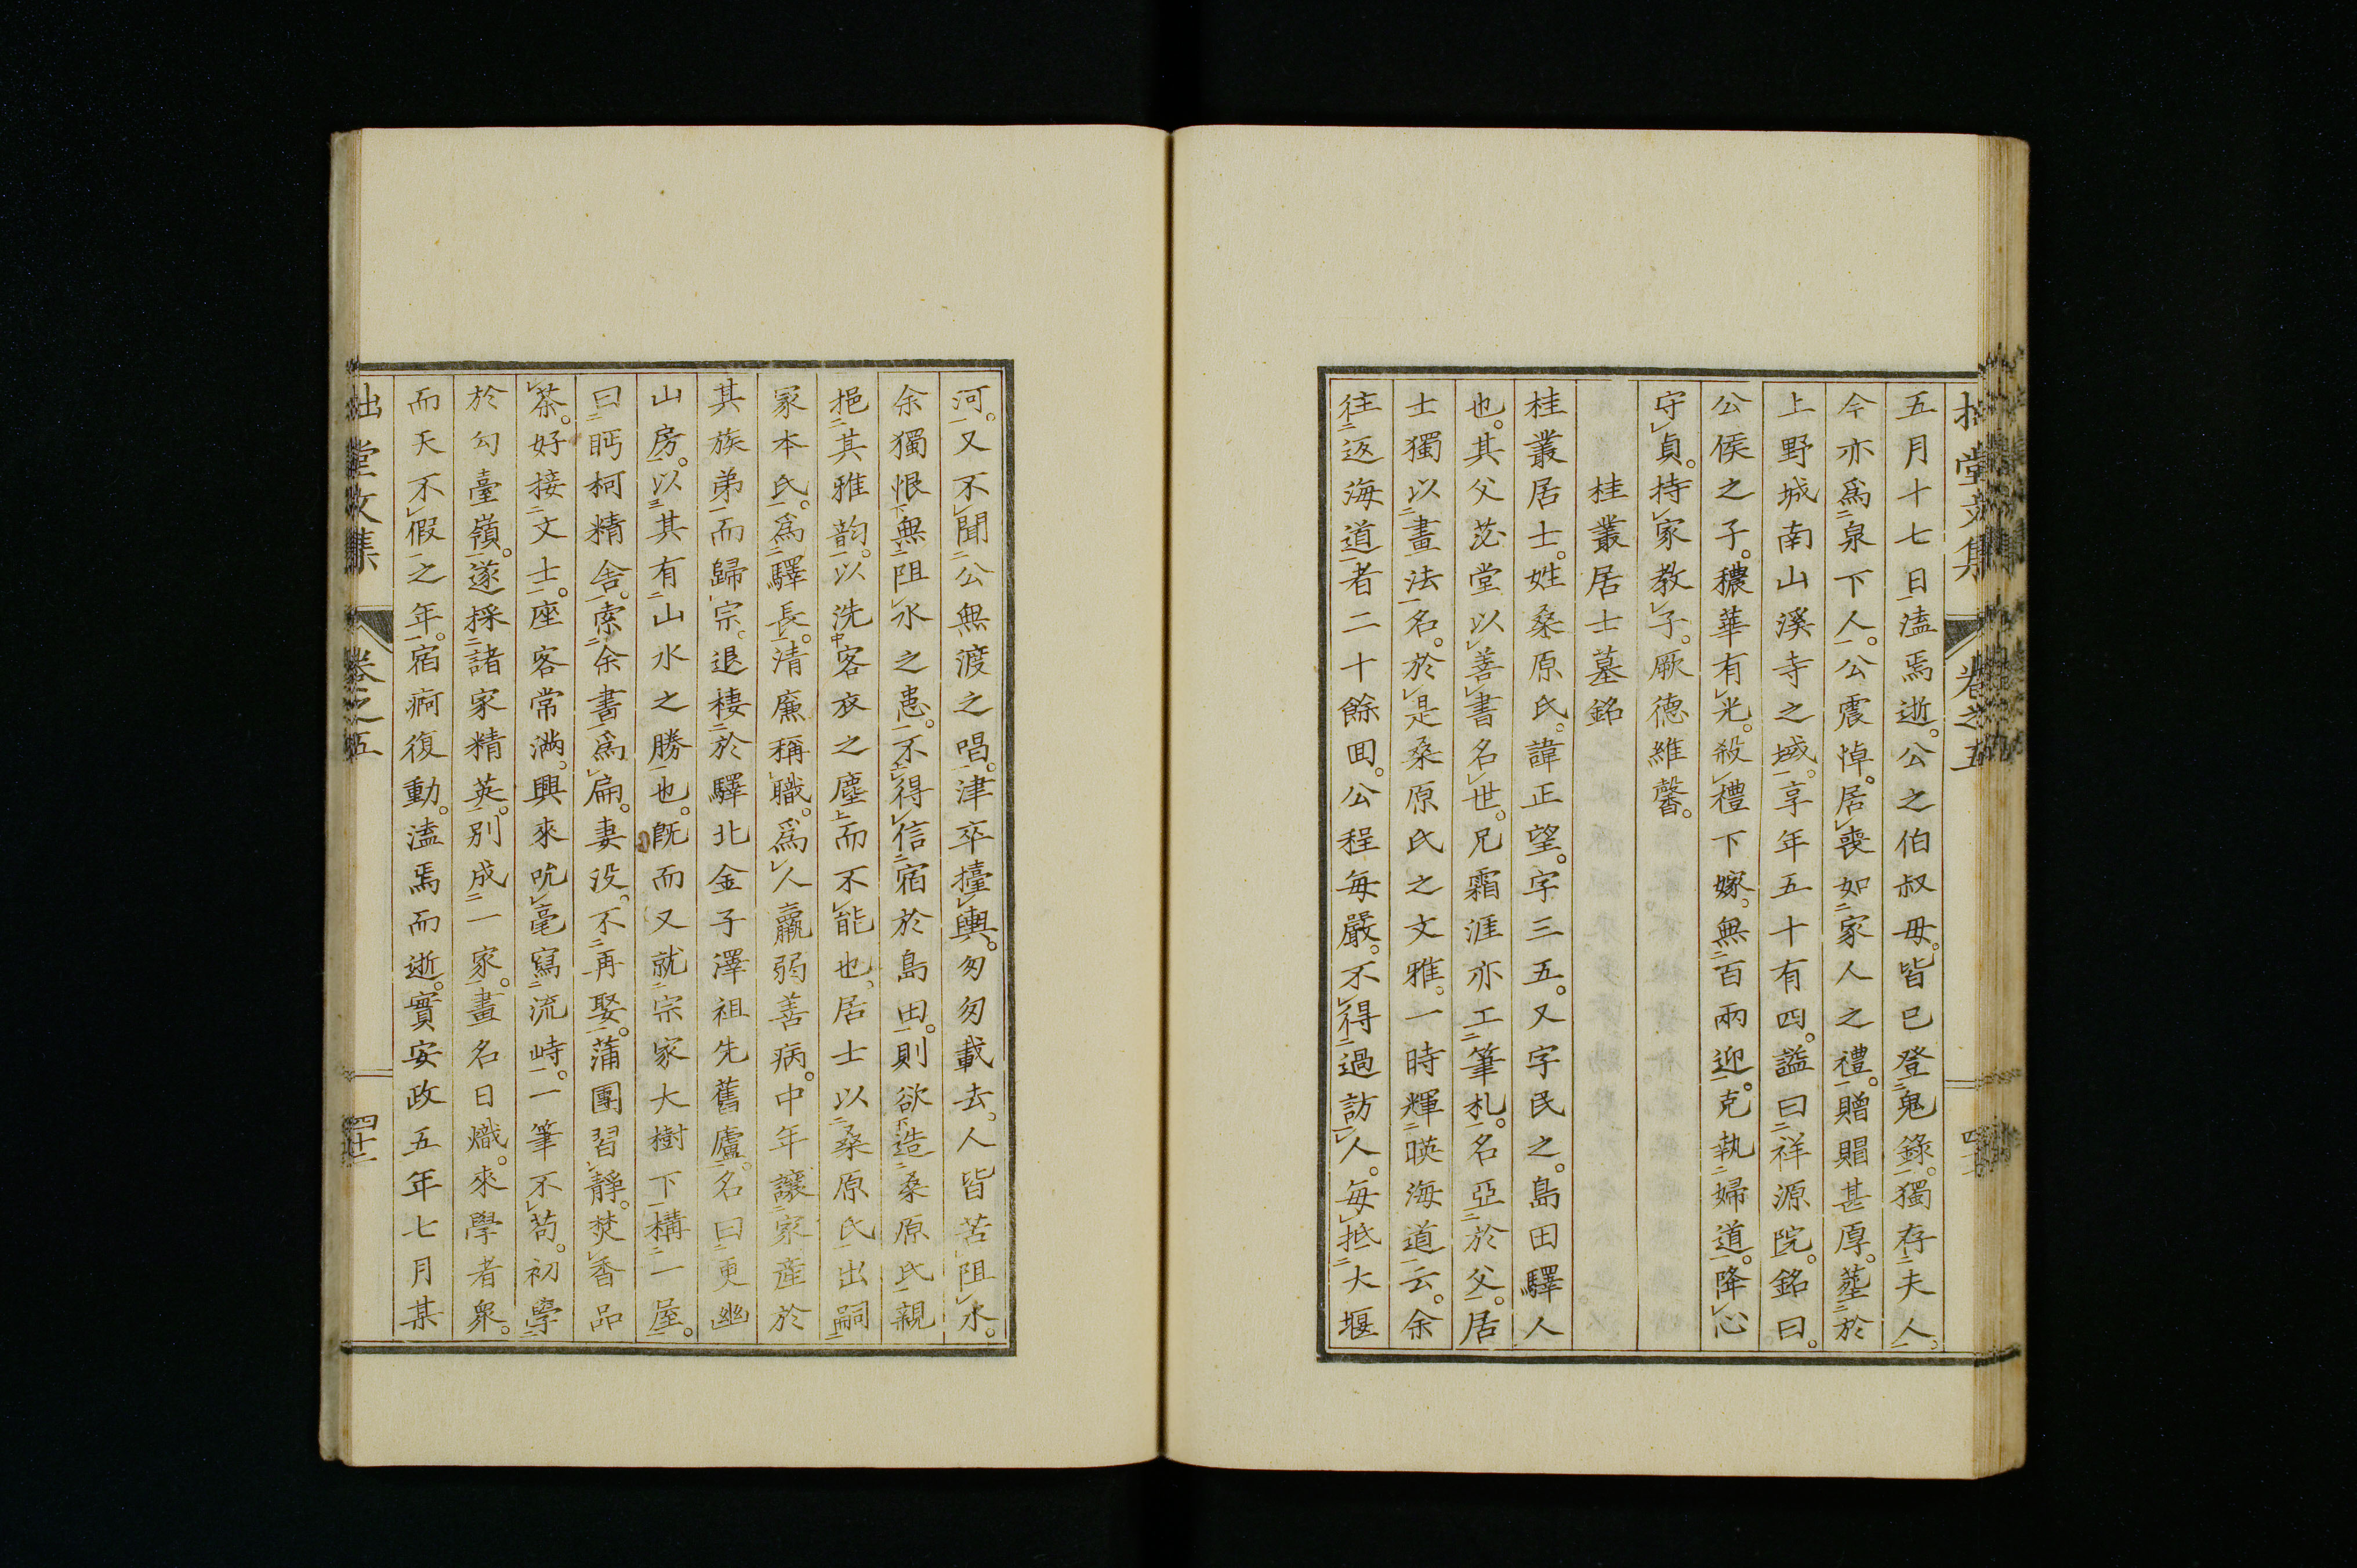 五月十七日溘焉逝。公之伯叔母。皆已登鬼錄。獨存夫人。
今亦爲泉下人。公震悼。居喪如家人之禮。贈賵甚厚。葬於
上野城南山溪寺之域。享年五十有四。謚曰祥源院。銘曰。
公侯之子。穠華有光。殺禮下嫁。無百兩迎。克執婦道。降心
守貞。持家教子。厥德維馨。
桂叢居士墓銘
桂叢居士。姓桑原氏。諱正望。字三五。又字民之。島田驛人
也。其父苾堂以善書名世。兄霜涯亦工筆札。名亞於父。居
士獨以畫法名。於是桑原氏之文雅。一時輝暎海道云。余
往返海道者二十餘囬。公程每嚴。不得過訪人。每抵大堰
河。又不聞公無渡之唱。津卒擡輿。匆匆載去。人皆苦阻水。
余獨恨無阻水之患。不得信宿於島田。則欲造桑原氏親
挹其雅韵。以洗客衣之塵而不能也。居士以桑原氏出嗣
冢本氏。爲驛長。清廉稱職。爲人羸弱善病。中年讓家產於
其族弟而歸宗。退棲於驛北金子澤祖先舊廬。名曰更幽
山房。以其有山水之勝也。既而又就宗家大樹下構一屋。
曰眄柯精舍。索余書爲扁。妻没。不再娶。蒲團習靜。焚香品
茶。好接文士。座客常滿。興來吮毫寫流峙。一筆不苟。初學
於勾臺嶺。遂採諸家精英。別成一家。畫名日熾。來學者衆。
而天不假之年。宿痾復動。溘焉而逝。實安政五年七月某
拙堂文集 卷之五
四十三